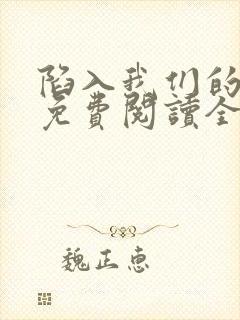 陷入我们的
免費閱讀全
魏正惠